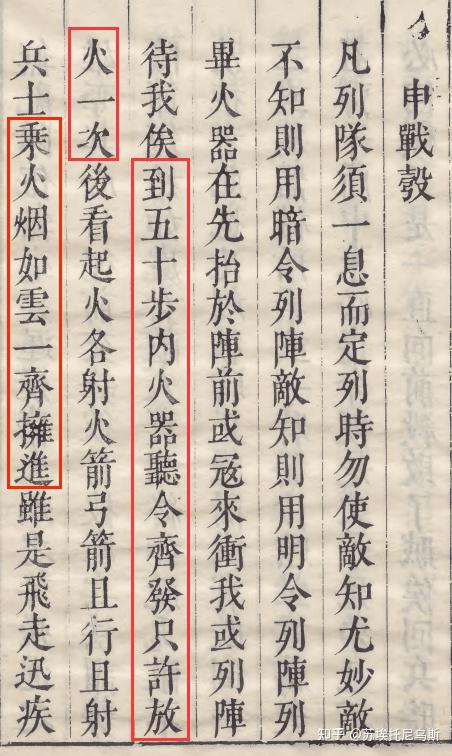 申戰彀
凡列隊須一息而定列時勿使敵知尤妙敵
不知則用暗令列陣敵知則用明令列陣列
畢火器在先抬於陣前或冦來衝我或列陣
待我俟到五十步内火器聽令齊發只許放
火一次後看起火各射火箭弓箭且行且射
兵士乘火烟如雲一齊擁進雖是飛走迅疾
知乎 @苏埃托尼乌斯